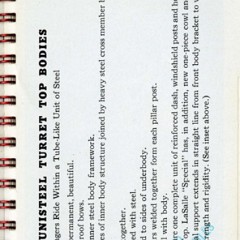 UNISTEEL TURRET TOP BODIES
gers Ride Within a Tube-Like Unit of Steel
ermanent, beautiful.
oof bows.
nner steel body framework.
es of inner body structure joined by heavy steel cross member b
ogether.
ed with steel.
d to sides of underbody.
ers welded together form each pillar post.
l with body.
re one complete unit of reinforced dash, windshield posts and h
op. LaSalle "Special" has, in addition, new one-piece cowl an
al support extends in straight line from front body bracket to v
rength and rigidity (See inset above.)